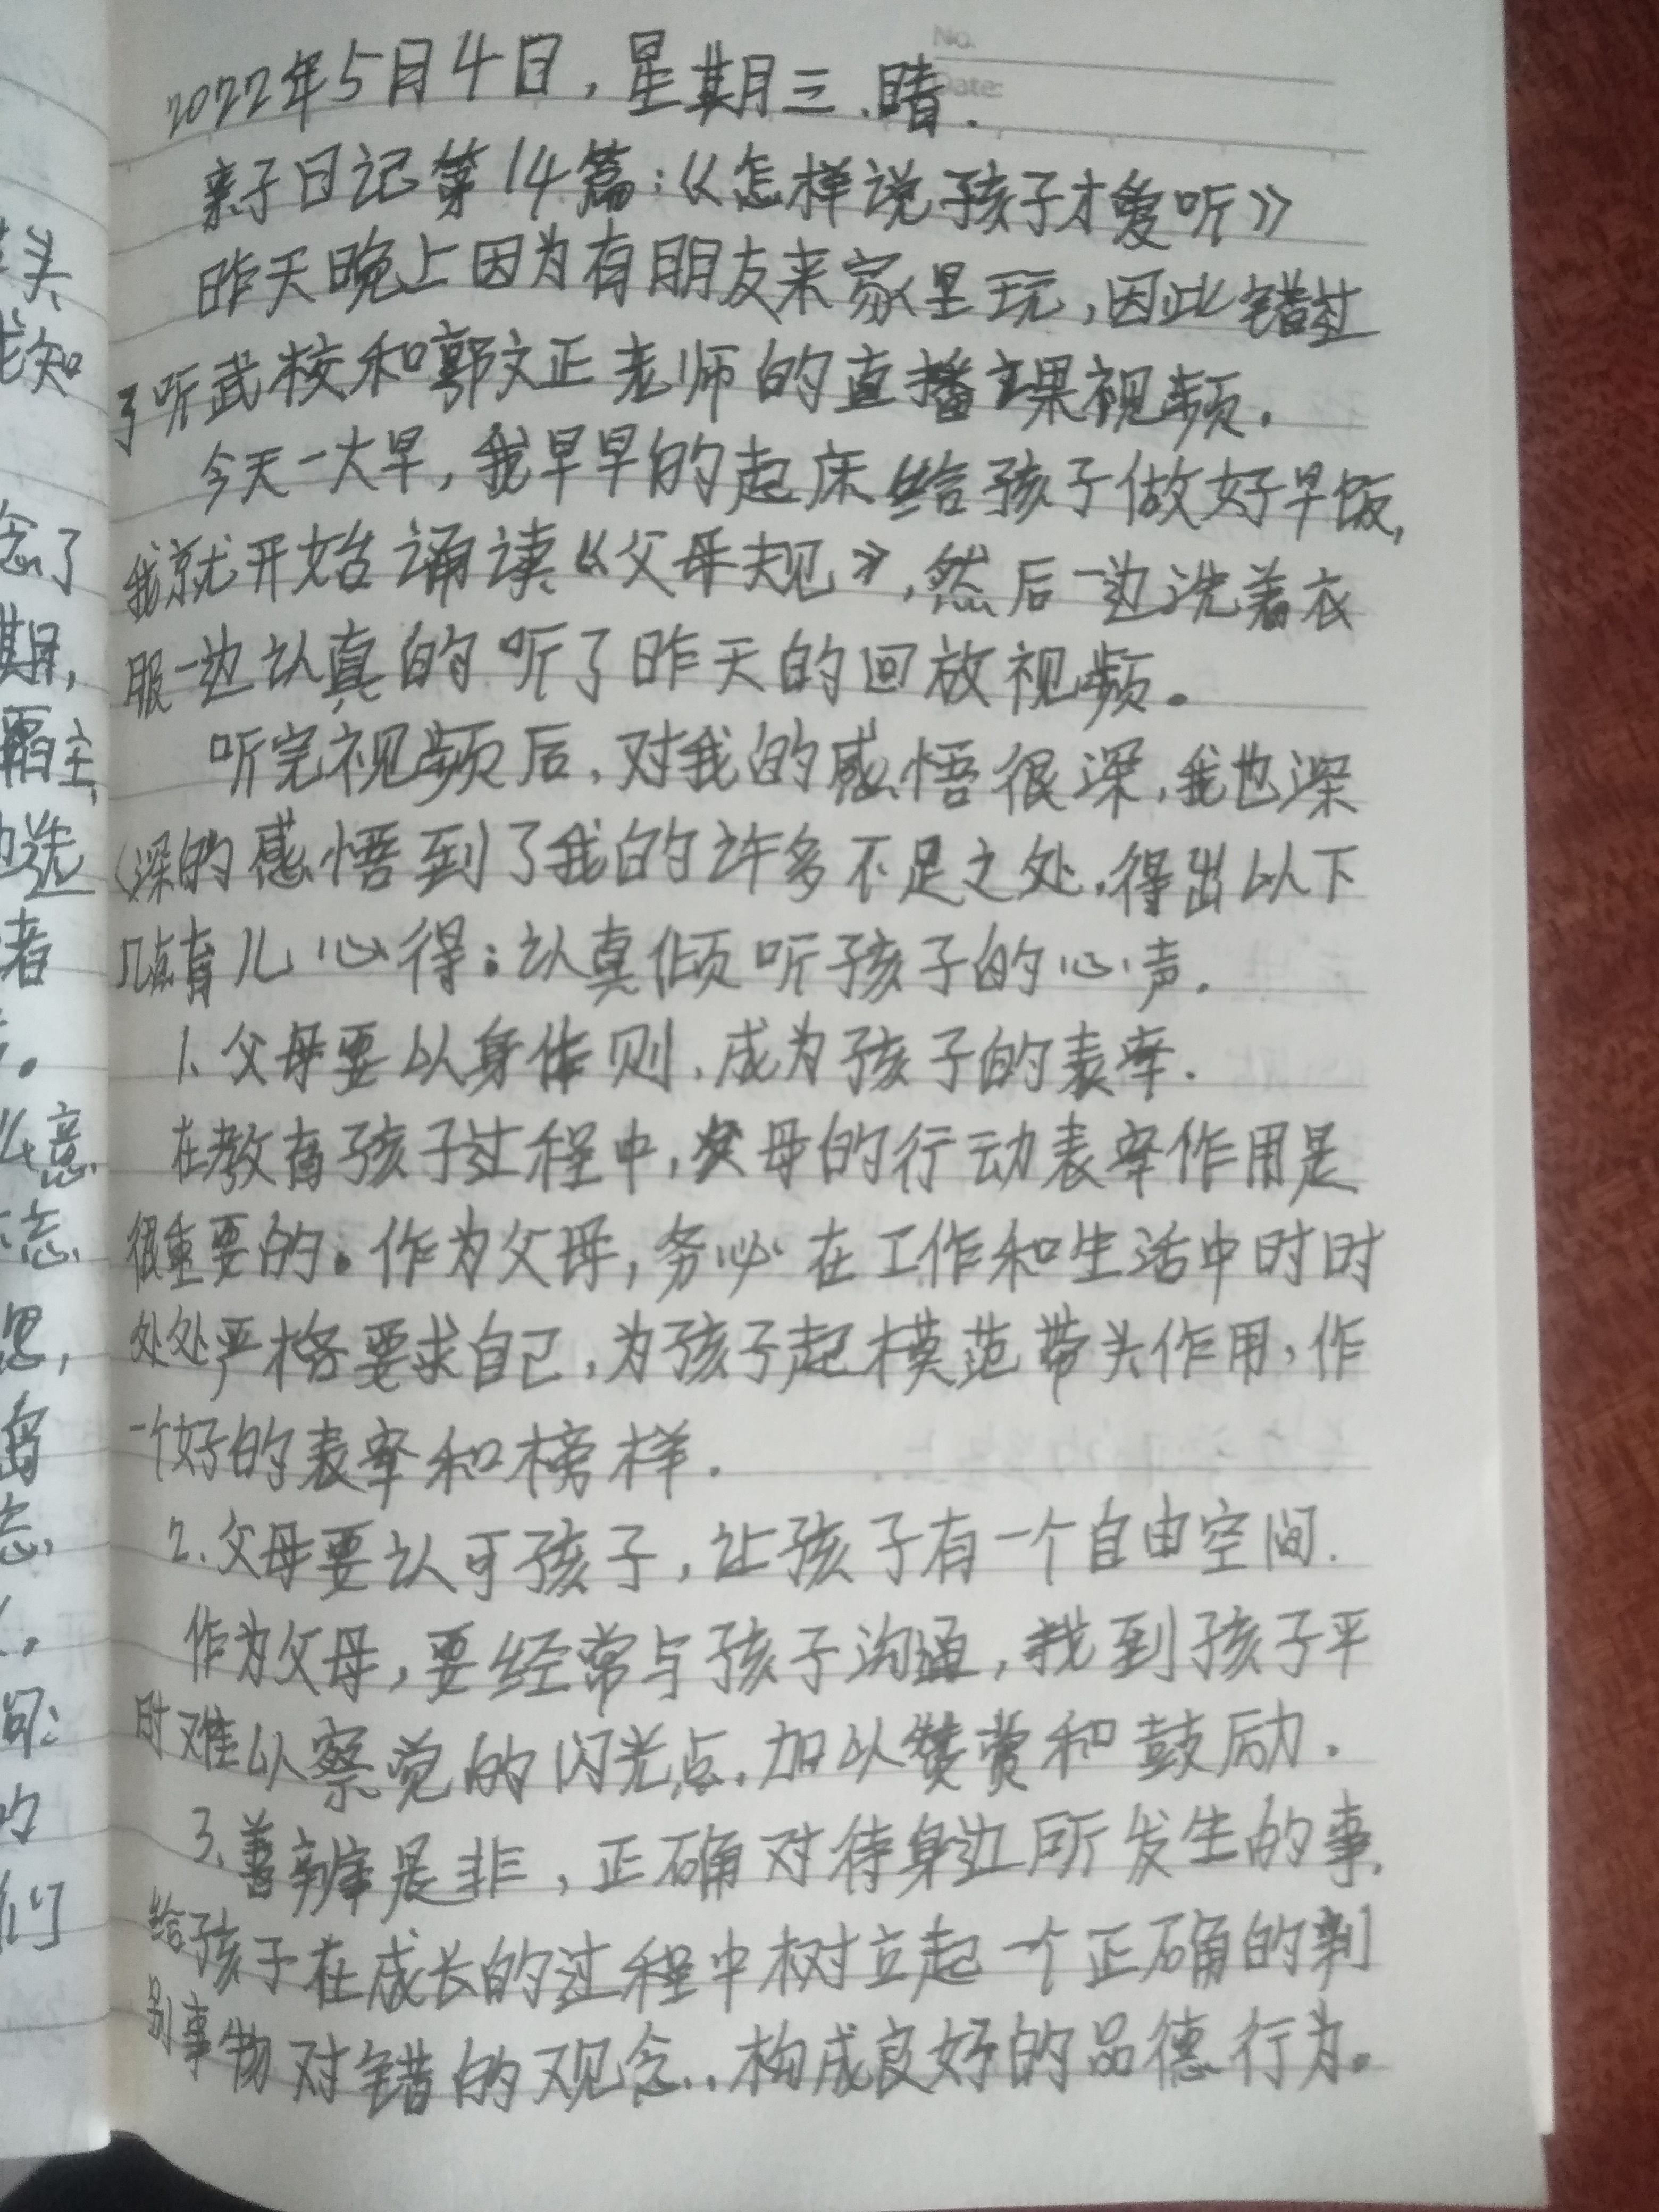 No.
Date:
2022年5月4日,星期三.晴.
亲子日记第14篇:《怎样说孩子才爱听》
昨天晚上因为有朋友来家里玩,因此错过
了听武校和郭文正老师的直播主课视频.
今天一大早,我早早的起床给孩子做好早饭,
我就开始诵读《父母规》,然后一边洗着衣
服一边认真的听了昨天的回放视频。
听完视频后,对我的感悟很深,我也深
深的感悟到了我的许多不足之处,得出以下
几点育儿心得:认真倾听孩子的心声.
1、父母要以身作则,成为孩子的表率.
在教育孩子过程中,父母的行动表率作用是
很重要的。作为父母,务必在工作和生活中时时
处处严格要求自己,为孩子起模范带头作用,作
一个好的表率和榜样.
2、父母要认可孩子,让孩子有一个自由空间.
作为父母,要经常与孩子沟通,找到孩子平
时难以察觉的闪光点,加以赞赏和鼓励.
3、善辨是非,正确对待身边所发生的事,
给孩子在成长的过程中树立起一个正确的判
别事物对错的观念..构成良好的品德行为。